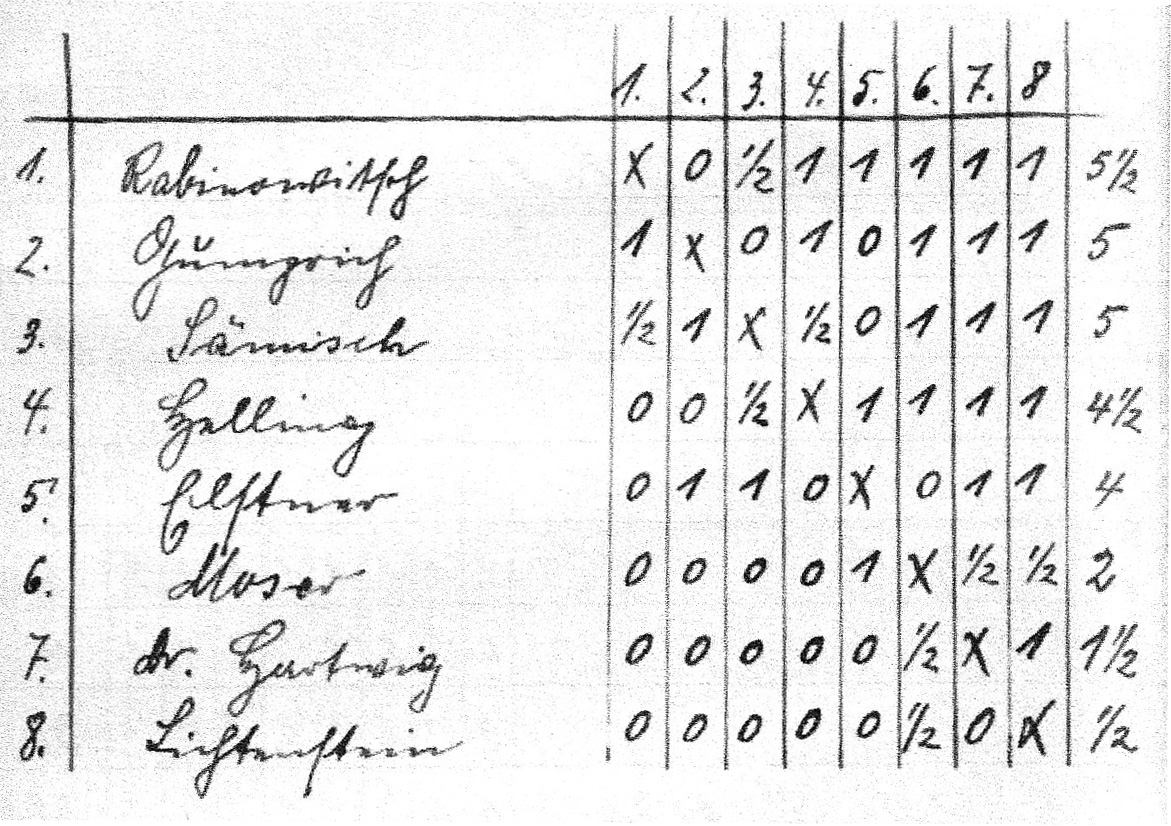 1. 2. 3. 4. 5. 6. 7. 8
1. Rabinowitsch X 0 ½ 1 1 1 1 1 5½
2. Gumprich 1 X 0 1 0 1 1 1 5
3. Sämisch ½ 1 X ½ 0 1 1 1 5
4. Helling 0 0 ½ X 1 1 1 1 4½
5. Elstner 0 1 1 0 X 0 1 1 4
6. Moser 0 0 0 0 1 X ½ ½ 2
7. Dr. Hartwig 0 0 0 0 0 ½ X 1 1½
8. Lichtenstein 0 0 0 0 0 ½ 0 X ½